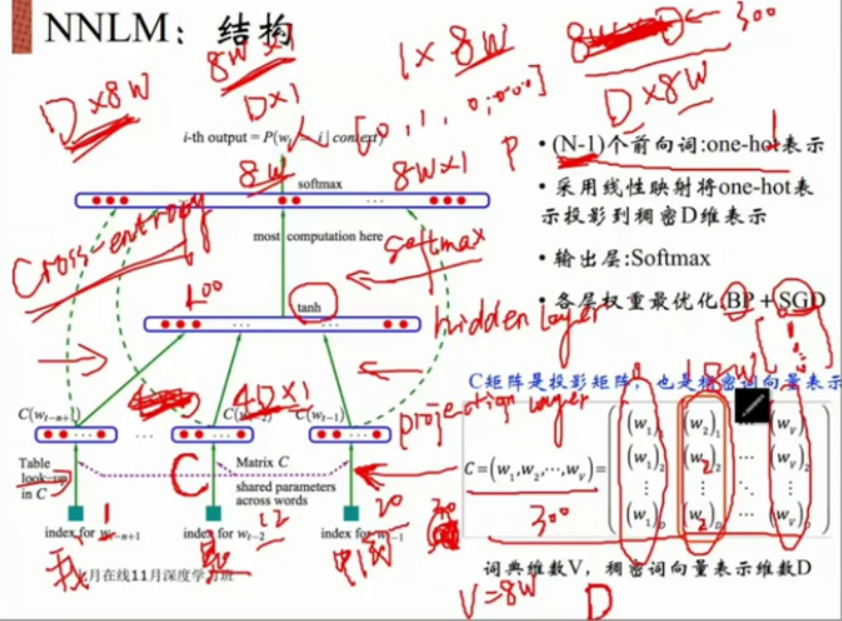 NNLM：结构
8W×1
1×8W
300
D×8W
D×1
D×8W
[0,1,0,0...]
i-th output = P(w_t = i | context)
8W
8W×1
P
softmax
Cross-entropy
most computation here
softmax
100
tanh
hidden layer
4D×1
projection layer
C(w_{t-n+1})
C(w_{t-2})
C(w_{t-1})
Table look-up in C
C
Matrix C
shared parameters across words
1
12
20
index for w_{t-n+1}
index for w_{t-2}
index for w_{t-1}
我
是
中国
月在线11月深度学习班
• (N-1)个前向词:one-hot表
示
• 采用线性映射将one-hot表
示投影到稠密D维表示
• 输出层:Softmax
• 各层权重最优化:BP+SGD
8W
C矩阵是投影矩阵，也是稠密词向量表示
C=(w₁,w₂,⋯,w_v)=
(w₁)₁ (w₂)₁ ⋯ (w_v)₁
(w₁)₂ (w₂)₂ ⋯ (w_v)₂
⋮ ⋮ ⋱ ⋮
(w₁)_D (w₂)_D ⋯ (w_v)_D
300
词典维数V，稠密词向量表示维数D
V=8W
D